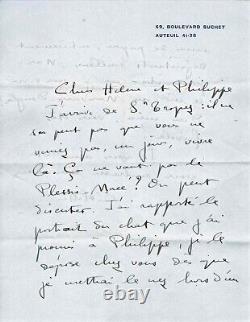 69, BOULEVARD SUCHET
AUTEUIL 41-38
Chers Hélène et Philippe
J'arrive de St Tropez : il ne
se peut pas que vous ne
veniez pas, un jour, vivre
là. Ça ne vaut pas le
Plessis-Macé? On peut
discuter. J'ai rapporté le
portrait du chat que j'ai
promis à Philippe, je le
dépose chez vous dès que
je mettrai le nez hors d'un